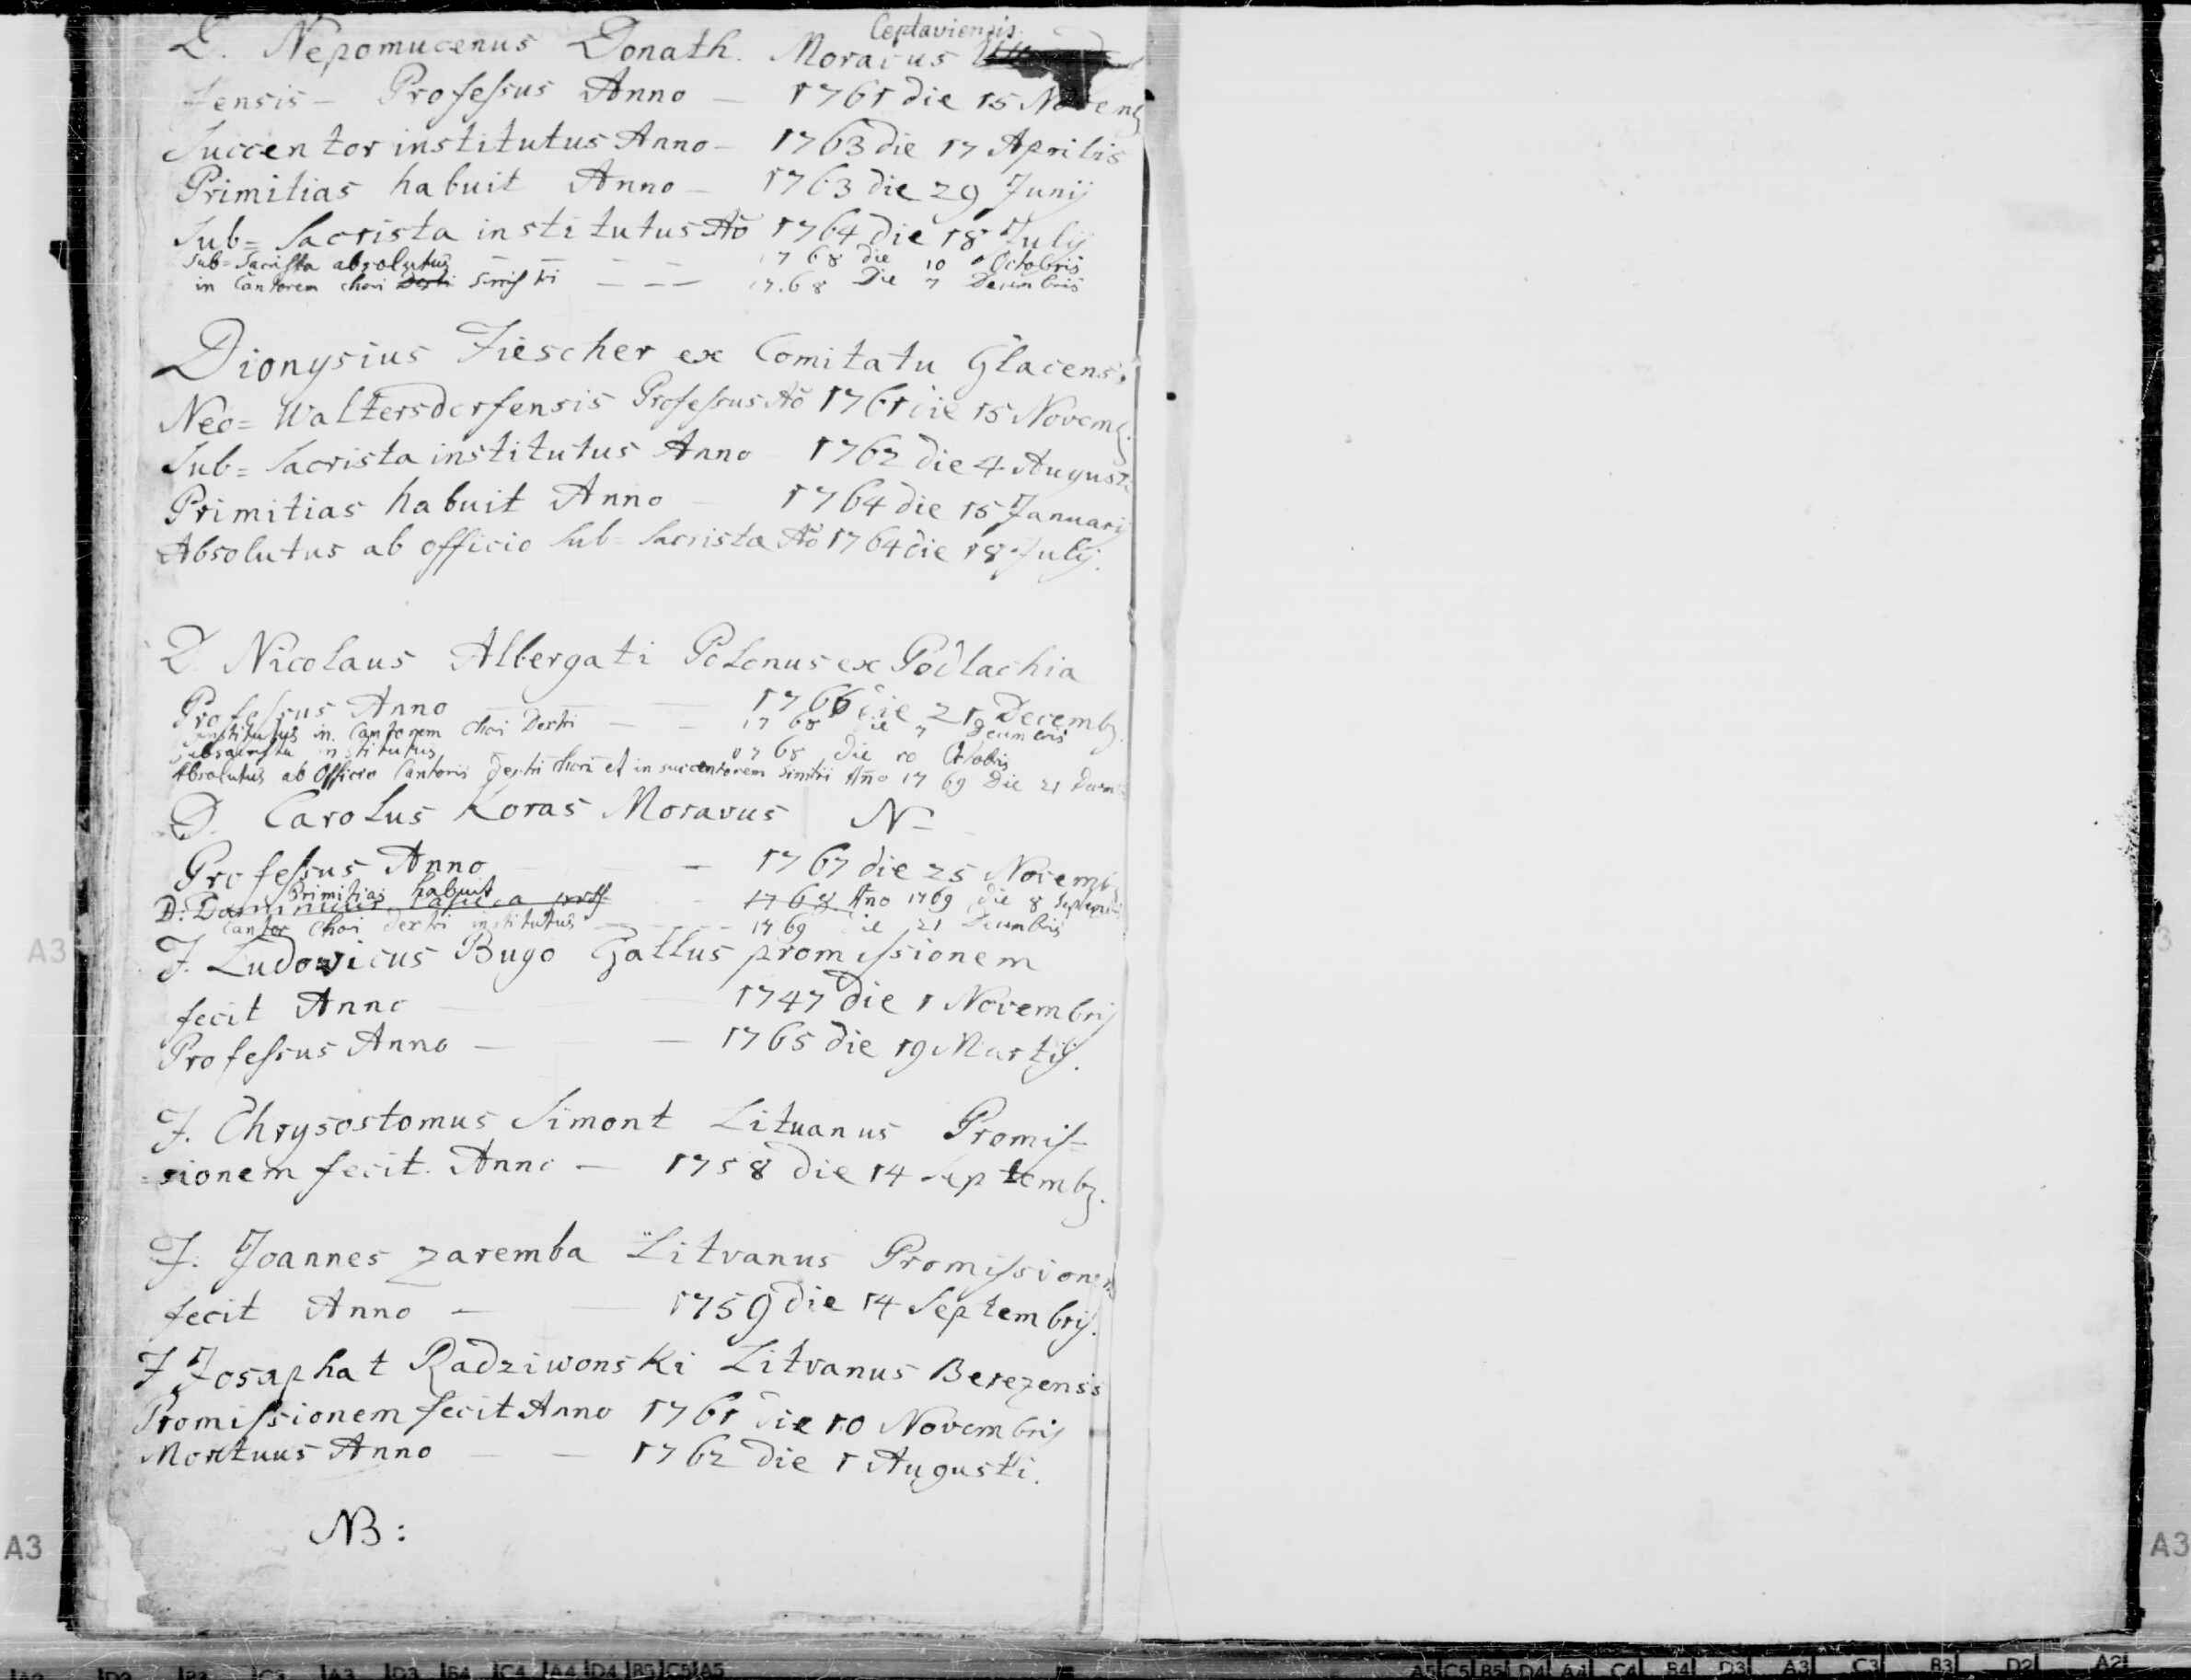 Ceptaviensis.
D. Nepomucenus Donath. Moravus
sensis – Professus Anno – 1761 die 15 Novemb
Succentor institutus Anno – 1763 die 17 Aprilis
Primitias habuit Anno – 1763 die 29 Junij
Sub= Sacrista institutus Ao 1764 die 18 Julij
Sub=Sacrista absolutus – – – – 1768 die 10 Octobris
in Cantorem chori Dextri Sinistri – – – 1768 Die 7 Decembris
Dionysius Fiescher ex Comitatu Glacens.
Neo= Waltersdorfensis Professus Ao 1761 die 15 Novemb.
Sub= Sacrista institutus Anno 1762 die 4 Augusti
Primitias habuit Anno – 1764 die 15 Januarij
Absolutus ab officio Sub= Sacrista Ao 1764 die 18 Julij.
D. Nicolaus Albergati Polonus ex Podlachia
Professus Anno – – 1766 die 21 Decemb.
Institutus in Cantorem Chori Dextri – – 1768 die 7 Decembris
Subsacrista institutus 1768 die 10 Octobris
Absolutus ab Officio Cantoris Dextri Chori et in succentorem Sinistri Ano 1769 Die 21 Decem
D. Carolus Koras Moravus N–
Professus Anno – – 1767 die 25 Novemb
Primitias habuit Ano 1769 die 8 Septembris
D: Dominicus 1768
Cantor Chori dextri institutus – – – – 1769 die 21 Decembris
F. Ludovicus Bugo Gallus promissionem
fecit Anno – – 1747 die 1 Novembris
Professus Anno – – 1765 die 19 Martij.
F. Chrysostomus Simont Lituanus Promis=
=sionem fecit. Anno – 1758 die 14 Septemb.
F. Joannes Zaremba Litvanus Promissionem
fecit Anno – – 1759 die 14 Septembris.
F Josaphat Radziwonski Litvanus Berezensis
Promissionem fecit Anno 1761 die 10 Novembris
Mortuus Anno – – 1762 die 1 Augusti.
NB:
A3
A3
A3